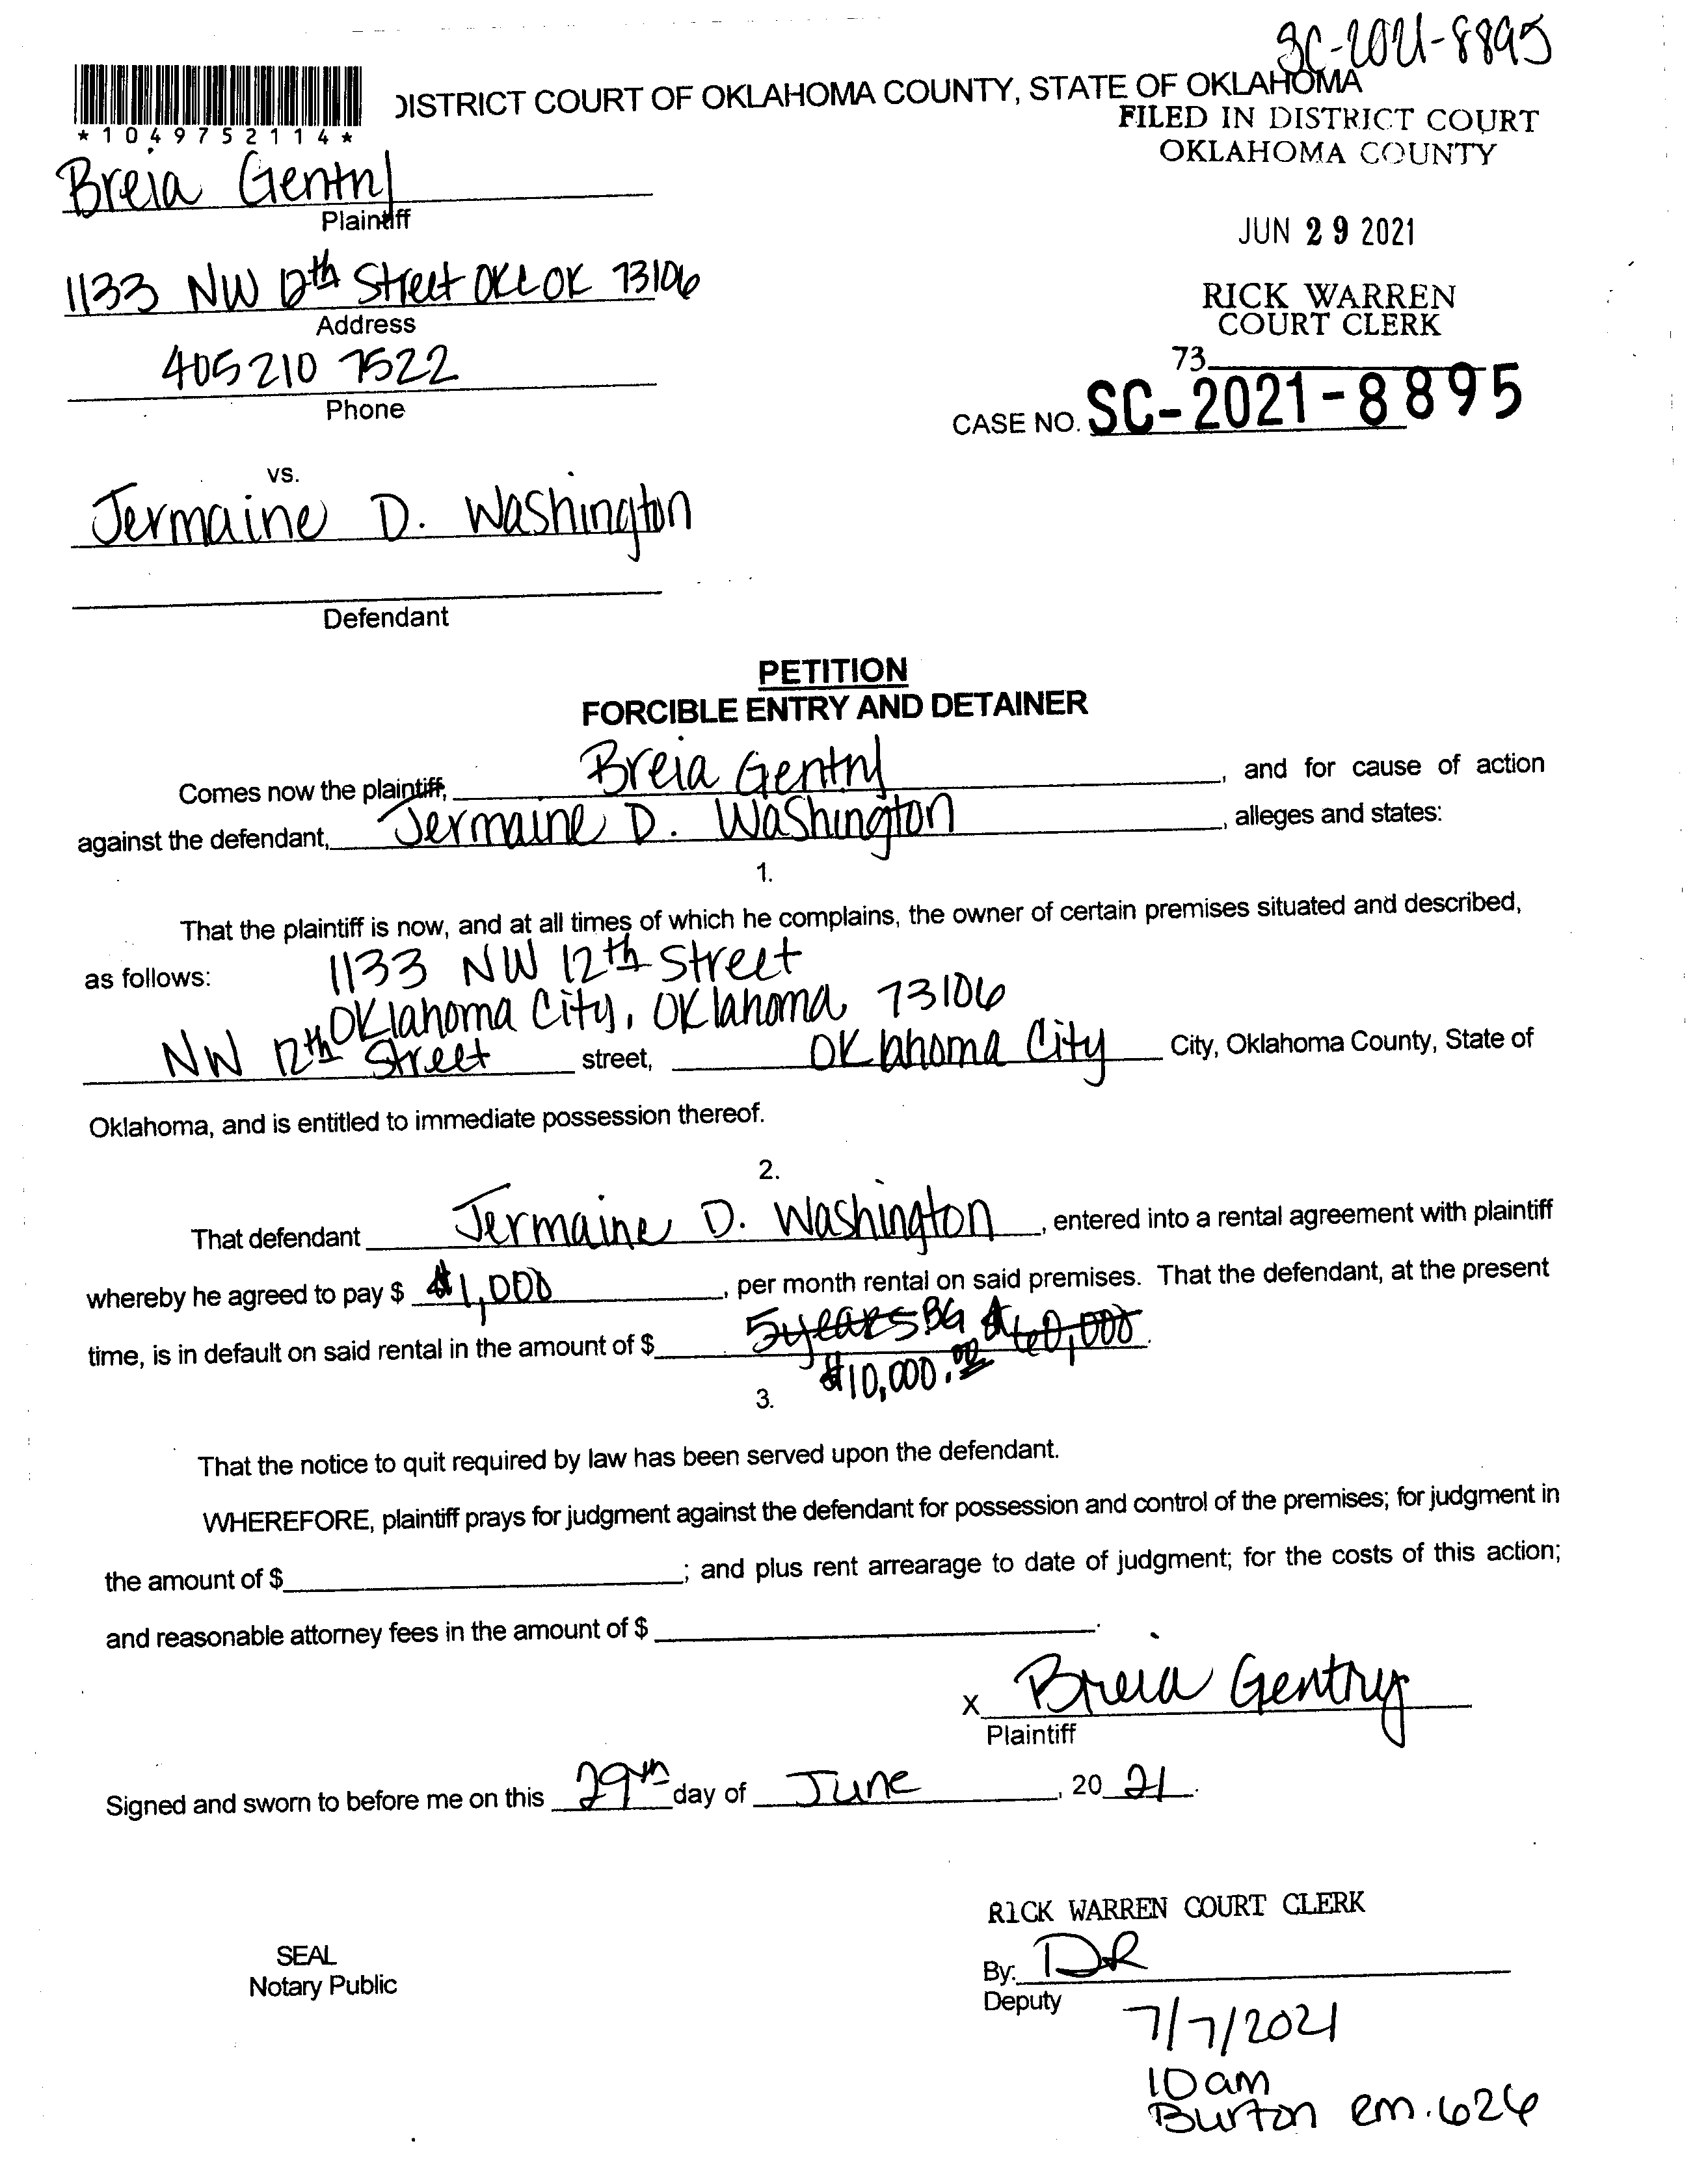 SC-2021-8895
DISTRICT COURT OF OKLAHOMA COUNTY, STATE OF OKLAHOMA
*1049752114*
FILED IN DISTRICT COURT
OKLAHOMA COUNTY
Breia Gentry
Plaintiff
JUN 29 2021
1133 NW 12th Street OKC OK 73106
Address
RICK WARREN
COURT CLERK
405 210 7522
Phone
73
CASE NO. SC-2021-8895
vs.
Jermaine D. Washington
Defendant
PETITION
FORCIBLE ENTRY AND DETAINER
Comes now the plaintiff, Breia Gentry, and for cause of action
against the defendant, Jermaine D. Washington, alleges and states:
1.
That the plaintiff is now, and at all times of which he complains, the owner of certain premises situated and described,
as follows: 1133 NW 12th Street
Oklahoma City, Oklahoma 73106
NW 12th Street street, Oklahoma City City, Oklahoma County, State of
Oklahoma, and is entitled to immediate possession thereof.
2.
That defendant Jermaine D. Washington, entered into a rental agreement with plaintiff
whereby he agreed to pay $ $1,000, per month rental on said premises. That the defendant, at the present
time, is in default on said rental in the amount of $ 5 years BG $60,000.
$10,000.00
3.
That the notice to quit required by law has been served upon the defendant.
WHEREFORE, plaintiff prays for judgment against the defendant for possession and control of the premises; for judgment in
the amount of $ ; and plus rent arrearage to date of judgment; for the costs of this action;
and reasonable attorney fees in the amount of $ .
X Breia Gentry
Plaintiff
Signed and sworn to before me on this 29th day of June, 20 21.
RICK WARREN COURT CLERK
SEAL
Notary Public
By: DR
Deputy
7/7/2021
10am
Burton rm. 626